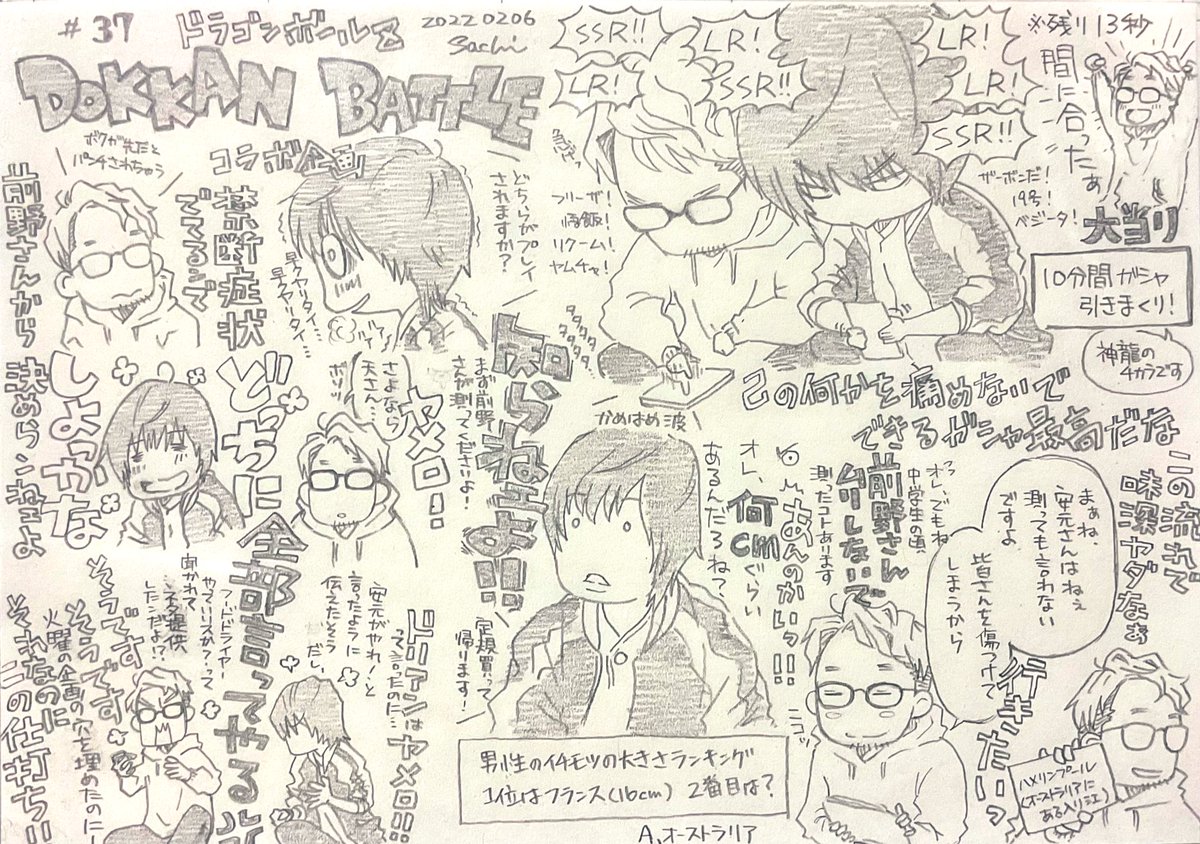 #37
ドラゴンボールZ
20220206
Sachi
DOKKAN BATTLE
コラボ企画
ボクが先だと
パンチされちゃう
前野さんから
決めらンねェよ
禁断症状
でてるンで
早クヤリタイ…
早クヤリタイ…
どちらがプレイ
されますか?
SSR!!
LR!
LR!
SSR!!
LR!
LR!
SSR!!
フリーザ!
悟飯!
リクーム!
ヤムチャ!
ザーボンだ!
19号!
ベジータ!
※残り13秒
間に合ったぁ
大当り
10分間ガシャ
引きまくり!
神龍の
チカラです
タタタタタタタタ
かめはめ波
己の何かを痛めないで
できるガシャ最高だな
どっちに
しよっかな
さよなら
天さん…
ボソッ
ヤメロ!
まず前野
さんが測ってくださいよ!
知らねェよ!!
定規買って
帰ります!
オレ、何cmぐらい
あるんだろね?
あんのかいっ!!
オレ、でもね
中学生の頃
測ったコトあります
前野さん
ムリしないで
まぁね、
安元さんはねぇ
測っても言わない
ですよ
皆さんを傷つけて
しまうから
この流れで
味深ヤダなぁ
行きたいっ
ニコッ
ハメリンプール
(オーストラリアに
ある入り江)
男性のイチモツの大きさランキング
1位はフランス(16cm) 2番目は?
A、オーストラリア
ドドリアンはヤメロ!!
安元がやれ!と
言たように
伝えたそう
だい
全部言ってやる
フードドライヤー
聞かれて
ネタ提供
したンだよ!?
そうです
そうです
火曜の企画の穴を埋めたのにー
それなのに
この仕打ち!!